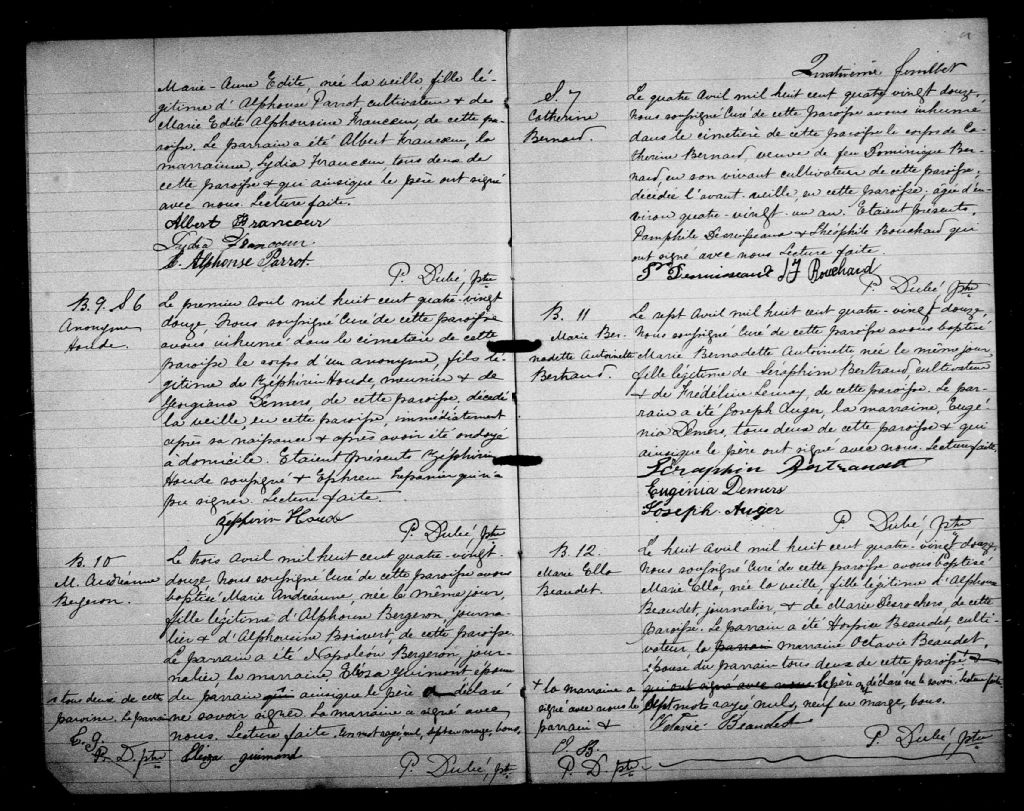 Marie-Anne Edite, née la veille, fille lé-
gitime d'Alphonse Parrot cultivateur & de
Marie Edite Alphonsine Francœur, de cette pa-
roisse. Le parrain a été Albert Francœur, la
marrainne, Lydia Francœur tous deux de
cette paroisse & qui ainsique le père ont signé
avec nous. Lecture faite.
Albert Francœur
Lydia Francœur
Alphonse Parrot.
P. Dubé, ptre
B. 9. S 6
Anonyme
Houde.
Le premier Avril mil huit cent quatre-vingt
douze, Nous soussigné Curé de cette paroisse
avons inhumé dans le cimetière de cette
paroisse le corps d'un anonyme, fils lé-
gitime de Zéphirin Houde, meunier & de
Georgiana Demers, de cette paroisse, décédé
la veille, en cette paroisse, immédiatement
après sa naissance & après avoir été ondoyé
à domicile. Etaient présents Zéphirin
Houde soussigné & Ephrem Lepanier qui n'a
pu signer. Lecture faite.
Zéphirin Houde
P. Dubé, ptre
B. 10
M. Andréanne
Bergeron.
Le trois Avril mil huit cent quatre-vingt-
douze Nous soussigné Curé de cette paroisse avons
baptisé Marie Andréanne, née le même jour,
fille légitime d'Alphonse Bergeron, journa-
lier & d'Alphonsine Boisvert, de cette paroisse.
Le parrain a été Napoléon Bergeron, jour-
nalier, la marraine, Eliza Guimont épouse
du parrain qui ainsique le père a déclaré
ne savoir signer. La marraine a signé avec
nous. Lecture faite.
x tous deux de cette
paroisse. Le parrain
E. G.
P. D. ptre
Eliza guimond
P. Dubé, ptre
Quatrième feuillet
S. 7
Catherine
Bernard.
Le quatre Avril mil huit cent quatre vingt douze,
Nous soussigné Curé de cette paroisse avons inhumé
dans le cimetière de cette paroisse le corps de Ca-
therine Bernard, veuve de feu Dominique Ber-
nard, en son vivant cultivateur de cette paroisse,
décédée l'avant-veille, en cette paroisse, âgée d'en-
viron quatre-vingt-un an. Etaient présents,
Pamphile & Théophile Bouchard qui
ont signé avec nous Lecture faite.
Bouchard
P. Dubé, ptre
B. 11
Marie Ber-
nadette Antoinette
Bertrand.
Le sept Avril mil huit cent quatre-vingt douze,
Nous soussigné Curé de cette paroisse avons baptisé
Marie Bernadette Antoinette née le même jour
fille légitime de Séraphin Bertrand, cultivateur
& de Frédéline Lemay, de cette paroisse. Le par-
rain a été Joseph Auger, la marraine, Eugé-
nia Demers, tous deux de cette paroisse & qui
ainsique le père ont signé avec nous. Lecture faite.
Séraphin Bertrand
Eugénia Demers
Joseph Auger
P. Dubé, ptre
B. 12.
Marie Ella
Beaudet.
Le huit Avril mil huit cent quatre-vingt douze
Nous soussigné Curé de cette paroisse avons baptisé
Marie Ella, née la veille, fille légitime d'Alphonse
Beaudet, journalier, & de Marie Desrochers, de cette
Paroisse. Le parrain a été Hospice Beaudet culti-
vateur, la parrain marraine Octavie Beaudet,
épouse du parrain tous deux de cette paroisse &
qui ont signé avec nous le père a déclaré ne le savoir. Lecture faite
Sept mots rayés nuls, neuf en marge, bons.
+ la marraine a
signé avec nous le
parrain &
O. B.
P. D. ptre
Beaudet
P. Dubé, ptre